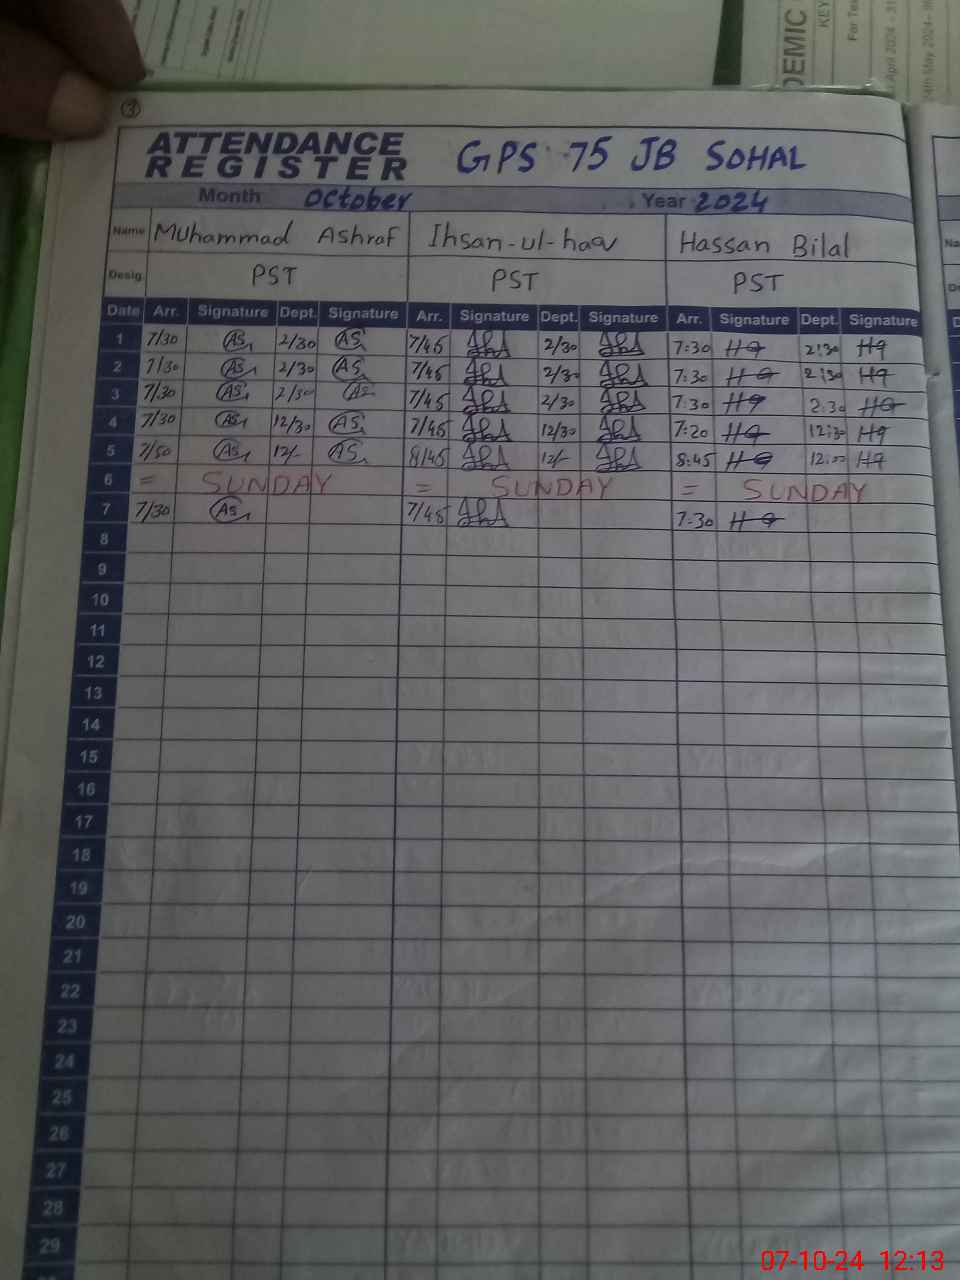 DEMIC
KEY
For Tea
April 2024 - 31
4th May 2024-
3
ATTENDANCE
REGISTER GPS 75 JB SOHAL
Month October Year 2024
Name Muhammad Ashraf Ihsan-ul-haq Hassan Bilal
Desig. PST PST PST
Date Arr. Signature Dept. Signature Arr. Signature Dept. Signature Arr. Signature Dept. Signature
1 7/30 AS 2/30 AS 7/45 2/30 7:30 HQ 2:30 HQ
2 7/30 AS 2/30 AS 7/45 2/30 7:30 HQ 2:30 HQ
3 7/30 AS 2/30 AS 7/45 2/30 7:30 HQ 2:30 HQ
4 7/30 AS 12/30 AS 7/45 12/30 7:20 HQ 12:30 HQ
5 7/50 AS 12/- AS 8/45 12/- 8:45 HQ 12:00 HQ
6 = SUNDAY = SUNDAY = SUNDAY
7 7/30 AS 7/45 7:30 HQ
8
9
10
11
12
13
14
15
16
17
18
19
20
21
22
23
24
25
26
27
28
29
07-10-24 12:13